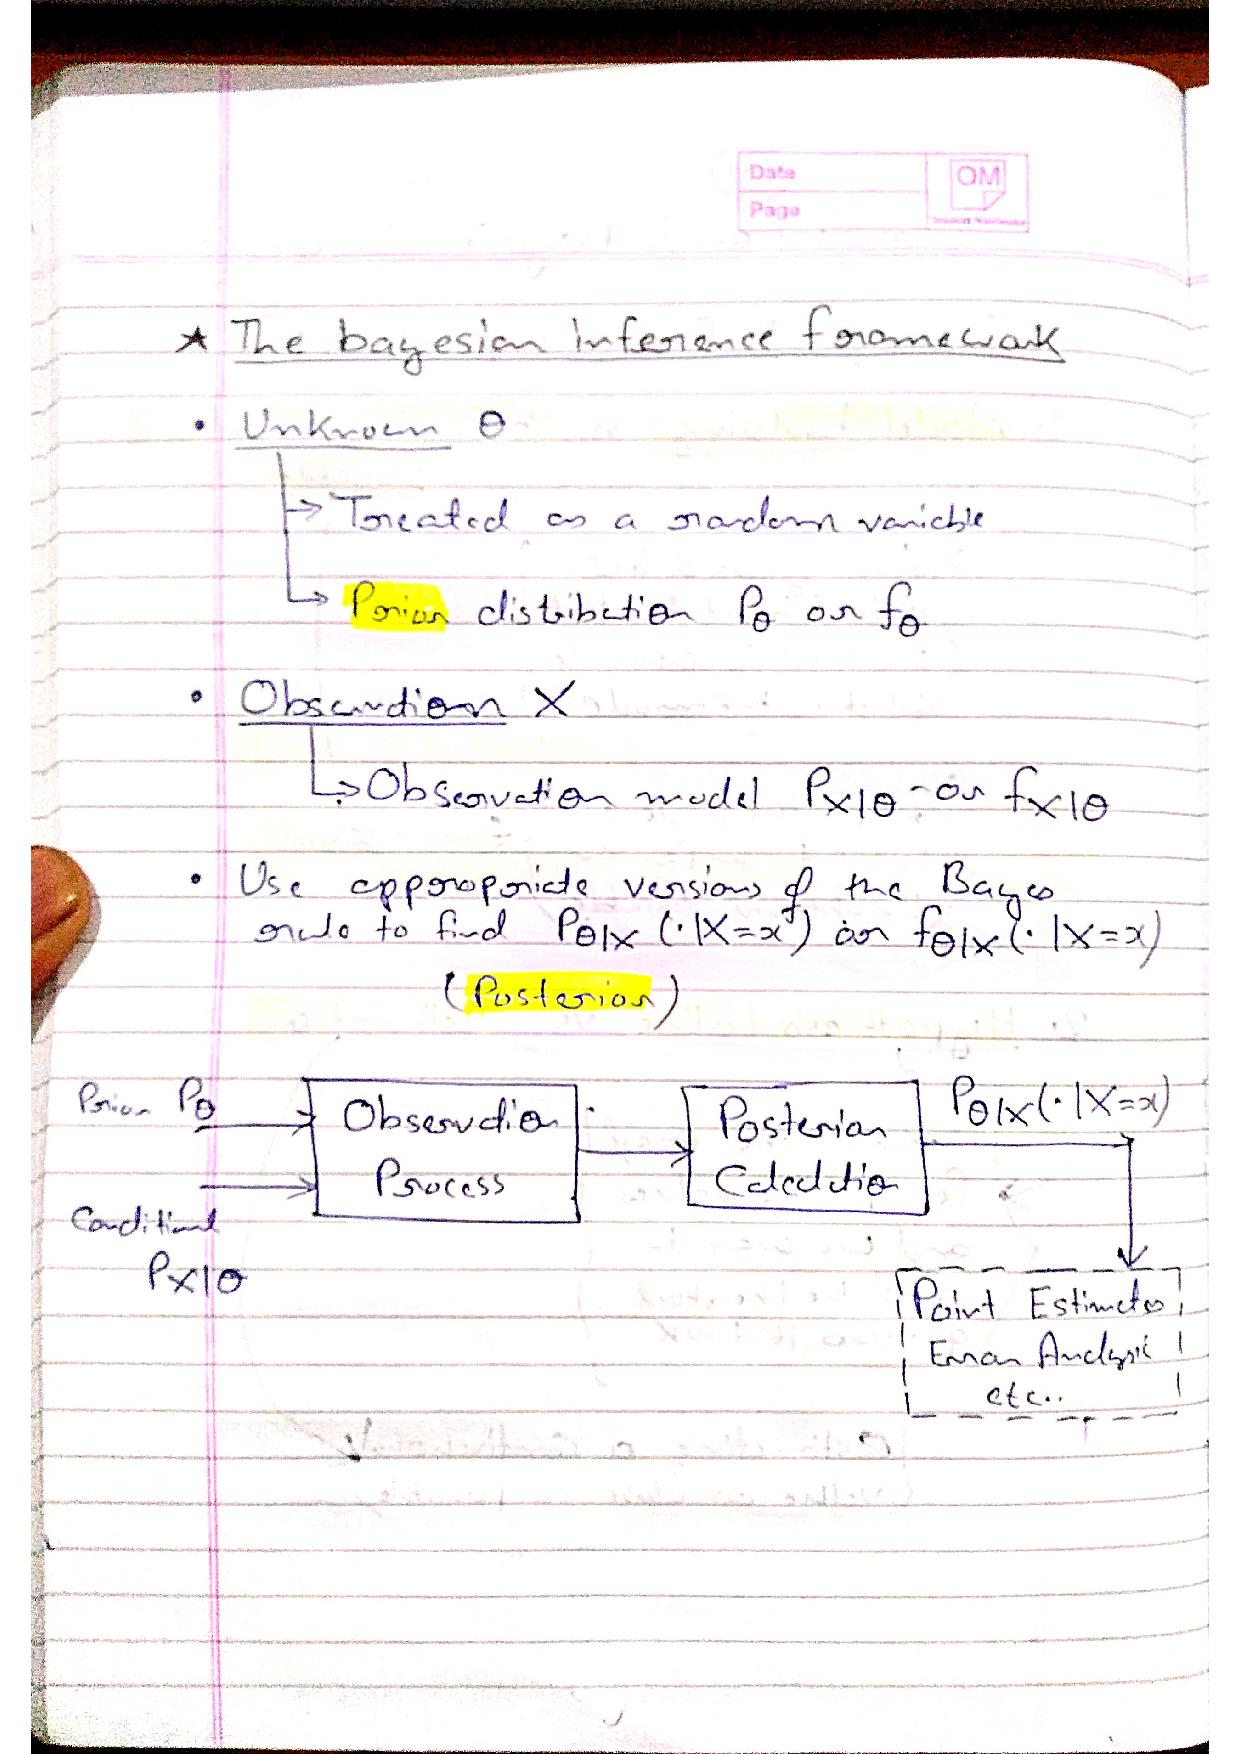 Date
Page
OM
★ The bayesian inference framework
• Unknown θ
→ Treated as a random variable
→ Prior distribution Pθ or fθ
• Observation X
→ Observation model PX|θ or fX|θ
• Use appropriate versions of the Bayes
rule to find Pθ|X (· |X=x) or fθ|X (· |X=x)
(Posterior)
Prior Pθ
Observation
Process
Posterior
Calculation
Pθ|X (· |X=x)
Conditional
PX|θ
Point Estimates
Error Analysis
etc..